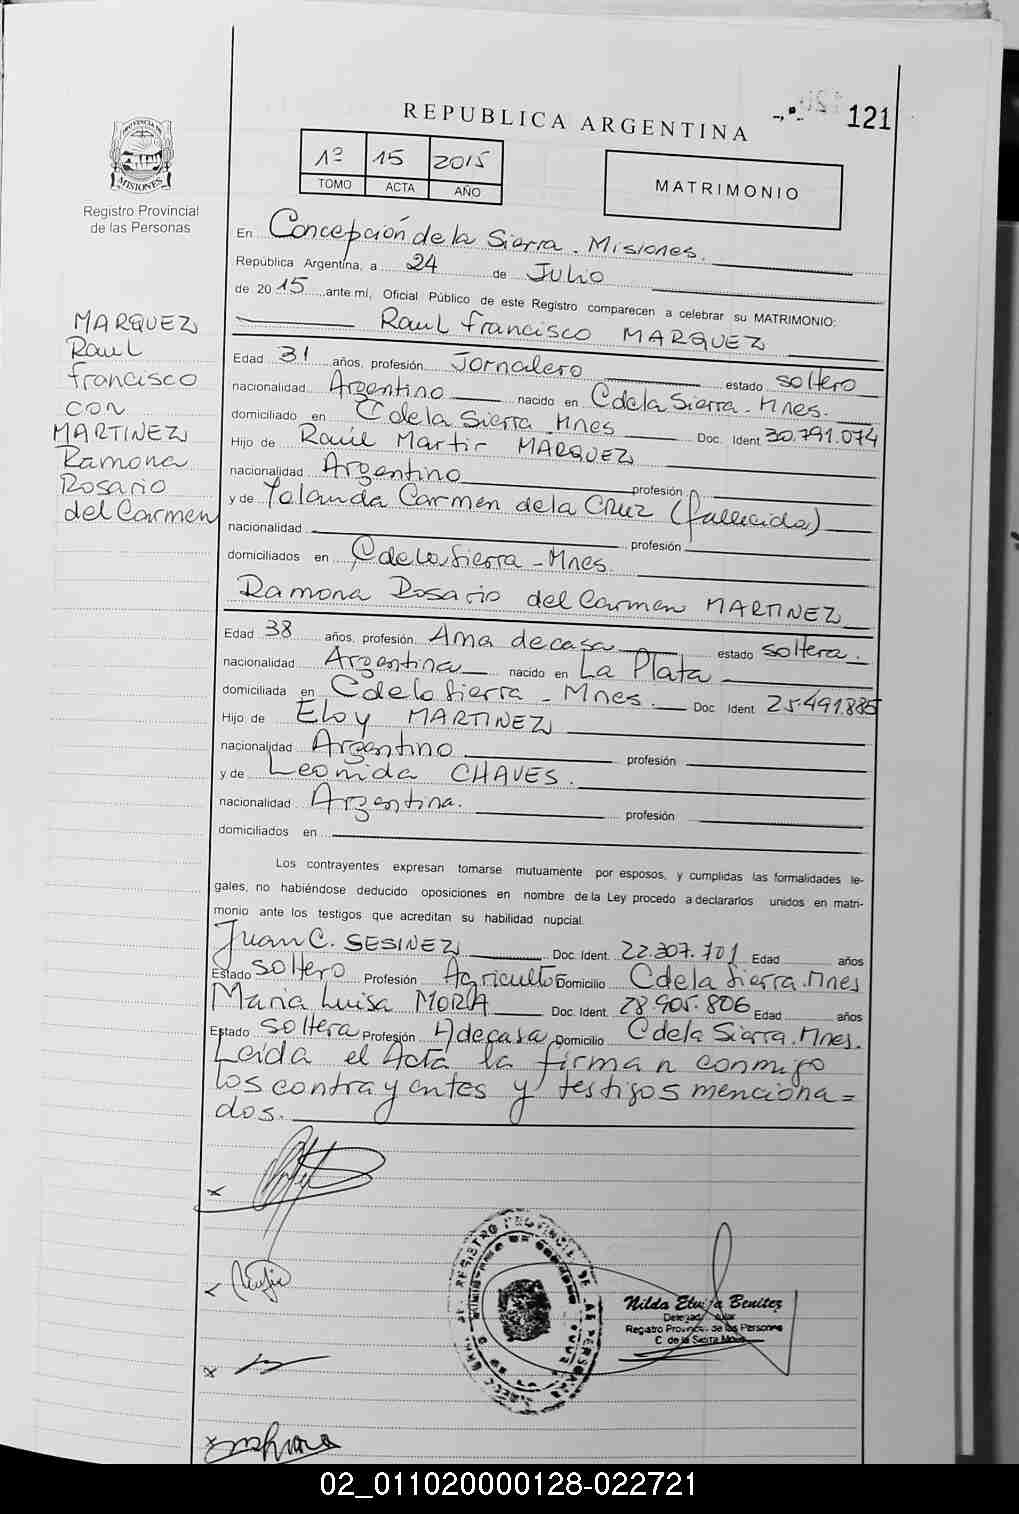 REPUBLICA ARGENTINA
121
1º 15 2015
TOMO ACTA AÑO
MATRIMONIO
PROVINCIA DE
MISIONES
Registro Provincial
de las Personas
MARQUEZ
Raul
francisco
con
MARTINEZ
Ramona
Rosario
del Carmen
En Concepción de la Sierra. Misiones.
República Argentina, a 24 de Julio
de 2015, ante mí, Oficial Público de este Registro comparecen a celebrar su MATRIMONIO:
Raul francisco MARQUEZ
Edad 31 años, profesión Jornalero estado soltero
nacionalidad Argentino nacido en C de la Sierra. Mnes.
domiciliado en C de la Sierra Mnes Doc. Ident. 30.791.074
Hijo de Raúl Martir MARQUEZ
nacionalidad Argentino profesión
y de Yolanda Carmen de la CRUZ (fallecida)
nacionalidad profesión
domiciliados en C de la Sierra - Mnes.
Ramona Rosario del Carmen MARTINEZ
Edad 38 años, profesión Ama de casa estado soltera.
nacionalidad Argentina nacido en La Plata
domiciliada en C de la Sierra - Mnes. Doc Ident 25.491.885
Hijo de Eloy MARTINEZ
nacionalidad Argentino profesión
y de Leonida CHAVES.
nacionalidad Argentina. profesión
domiciliados en
Los contrayentes expresan tomarse mutuamente por esposos, y cumplidas las formalidades le-
gales, no habiéndose deducido oposiciones en nombre de la Ley procedo a declararlos unidos en matri-
monio ante los testigos que acreditan su habilidad nupcial.
Juan C. SESINEZ Doc. Ident. 22.307.701 Edad años
Estado soltero Profesión Agricultor Domicilio C de la Sierra. Mnes
Maria Luisa MORA Doc. Ident. 28.905.806 Edad años
Estado soltera Profesión A de casa Domicilio C de la Sierra. Mnes.
Leida el Acta la firman conmigo
los contrayentes y testigos menciona=
dos.
REGISTRO PROVINCIAL DE LAS PERSONAS
Nilda Elvira Benitez
Registro Provincial de las Personas
C de la Sierra Mnes
02_011020000128-022721